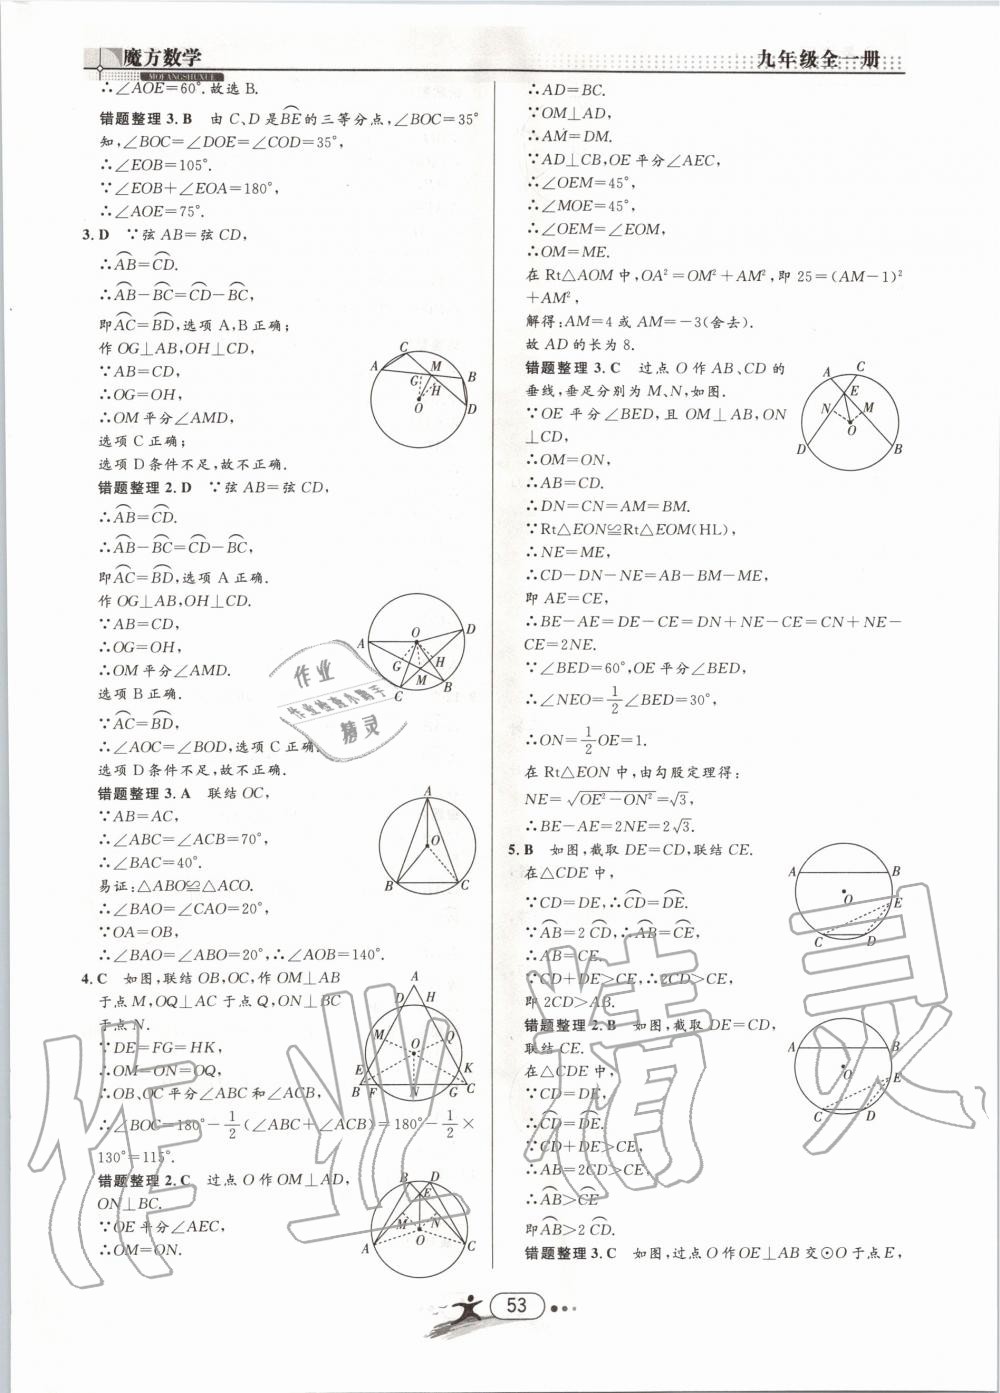 魔方数学
MOFANGSHUXUE
九年级全一册
∴∠AOE=60°.故选B.
错题整理3.B 由C、D是BE的三等分点,∠BOC=35°
知,∠BOC=∠DOE=∠COD=35°,
∴∠EOB=105°.
∵∠EOB+∠EOA=180°,
∴∠AOE=75°.
3.D ∵弦AB=弦CD,
∴AB=CD.
∴AB-BC=CD-BC,
即AC=BD,选项A,B正确;
作OG⊥AB,OH⊥CD.
∵AB=CD,
∴OG=OH,
∴OM平分∠AMD,
选项C正确;
选项D条件不足,故不正确.
C
A
M
G
H
B
O
D
错题整理2.D ∵弦AB=弦CD,
∴AB=CD.
∴AB-BC=CD-BC,
即AC=BD,选项A正确.
作OG⊥AB,OH⊥CD.
∵AB=CD,
∴OG=OH,
∴OM平分∠AMD.
选项B正确.
∵AC=BD,
∴∠AOC=∠BOD,选项C正确.
选项D条件不足,故不正确.
O
D
A
G
H
M
C
B
错题整理3.A 联结OC,
∵AB=AC,
∴∠ABC=∠ACB=70°,
∴∠BAC=40°.
易证:△ABO≌△ACO.
∴∠BAO=∠CAO=20°,
∵OA=OB,
∴∠BAO=∠ABO=20°,∴∠AOB=140°.
A
O
B
C
4.C 如图,联结OB,OC,作OM⊥AB
于点M,OQ⊥AC于点Q,ON⊥BC
于点N.
∵DE=FG=HK,
∴OM=ON=OQ,
∴OB、OC平分∠ABC和∠ACB,
∴∠BOC=180°-1/2(∠ABC+∠ACB)=180°-1/2×
130°=115°.
A
D
H
M
Q
O
E
K
B
F
N
G
C
错题整理2.C 过点O作OM⊥AD,
ON⊥BC.
∵OE平分∠AEC,
∴OM=ON.
B
D
E
M
N
O
A
C
∴AD=BC.
∵OM⊥AD,
∴AM=DM.
∵AD⊥CB,OE平分∠AEC,
∴∠OEM=45°,
∴∠MOE=45°,
∴∠OEM=∠EOM,
∴OM=ME.
在Rt△AOM中,OA²=OM²+AM²,即25=(AM-1)²
+AM²,
解得:AM=4或AM=-3(舍去).
故AD的长为8.
错题整理3.C 过点O作AB、CD的
垂线,垂足分别为M、N,如图.
∵OE平分∠BED,且OM⊥AB,ON
⊥CD,
∴OM=ON,
∴AB=CD.
∴DN=CN=AM=BM.
∵Rt△EON≌Rt△EOM(HL),
∴NE=ME,
∴CD-DN-NE=AB-BM-ME,
即AE=CE,
∴BE-AE=DE-CE=DN+NE-CE=CN+NE-
CE=2NE.
∵∠BED=60°,OE平分∠BED,
∴∠NEO=1/2∠BED=30°,
∴ON=1/2OE=1.
在Rt△EON中,由勾股定理得:
NE=√(OE²-ON²)=√3,
∴BE-AE=2NE=2√3.
A
C
E
N
M
O
D
B
5.B 如图,截取DE=CD,联结CE.
在△CDE中,
∵CD=DE,∴CD=DE.
∵AB=2CD,∴AB=CE,
∴AB=CE.
∵CD+DE>CE,∴2CD>CE,
即2CD>AB.
A
B
O
E
C
D
错题整理2.B 如图,截取DE=CD,
联结CE.
在△CDE中,
∵CD=DE,
∴CD=DE.
∵CD+DE>CE,
∴AB=2CD>CE,
∴AB>CE
即AB>2CD.
A
B
O
E
C
D
错题整理3.C 如图,过点O作OE⊥AB交⊙O于点E,
53
作业
作业检查小助手
精灵
作业精灵